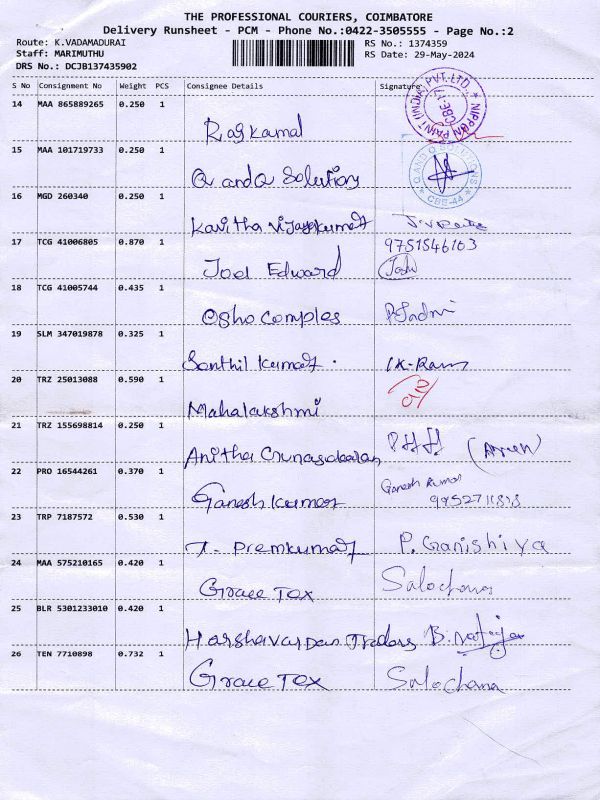 THE PROFESSIONAL COURIERS, COIMBATORE
Delivery Runsheet - PCM - Phone No.:0422-3505555 - Page No.:2
Route: K.VADAMADURAI
Staff: MARIMUTHU
DRS No.: DCJB137435902
RS No.: 1374359
RS Date: 29-May-2024
S No Consignment No Weight PCS Consignee Details Signature
14 MAA 865889265 0.250 1
Rajkamal
NIPPON PAINT (INDIA) PVT. LTD. CBE-11
15 MAA 101719733 0.250 1
Q and Q Solution
Q AND Q SOLUTIONS CBE-44
16 MGD 260340 0.250 1
Kavitha Vijaykumar
17 TCG 41006805 0.870 1
9751546163
Joel Edward
18 TCG 41005744 0.435 1
Osho Complex
19 SLM 347019878 0.325 1
Senthil Kumar
20 TRZ 25013088 0.590 1
Mahalakshmi
21 TRZ 155698814 0.250 1
Anitha Gunasekalan
22 PRO 16544261 0.370 1
Ganesh Kumar
Ganesh Kumar
23 TRP 7187572 0.530 1
T. Premkumar P. Ganishiya
24 MAA 575210165 0.420 1
Grace Tex Salochana
25 BLR 5301233010 0.420 1
Harshavardan Traders
26 TEN 7710898 0.732 1
Grace Tex Salochana